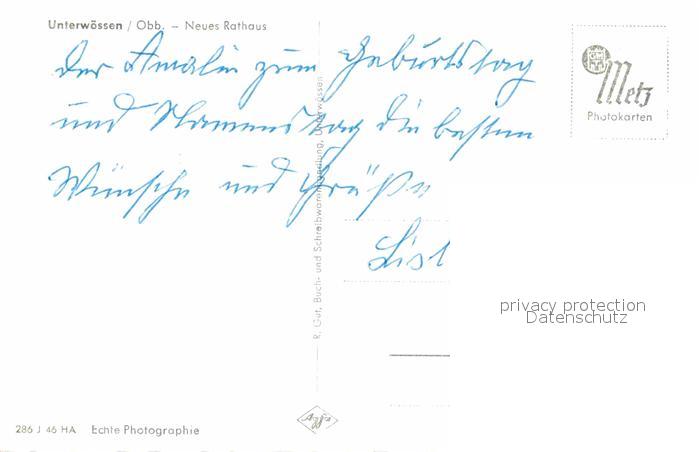 Unterwössen / Obb. – Neues Rathaus
Metz
Photokarten
Der Amalie zum Geburtstag
und Namenstag die besten
Wünsche und Grüße
R. Gut, Buch- und Schreibwarenhandlung, Unterwössen
privacy protection
Datenschutz
Agfa
286 J 46 HA Echte Photographie